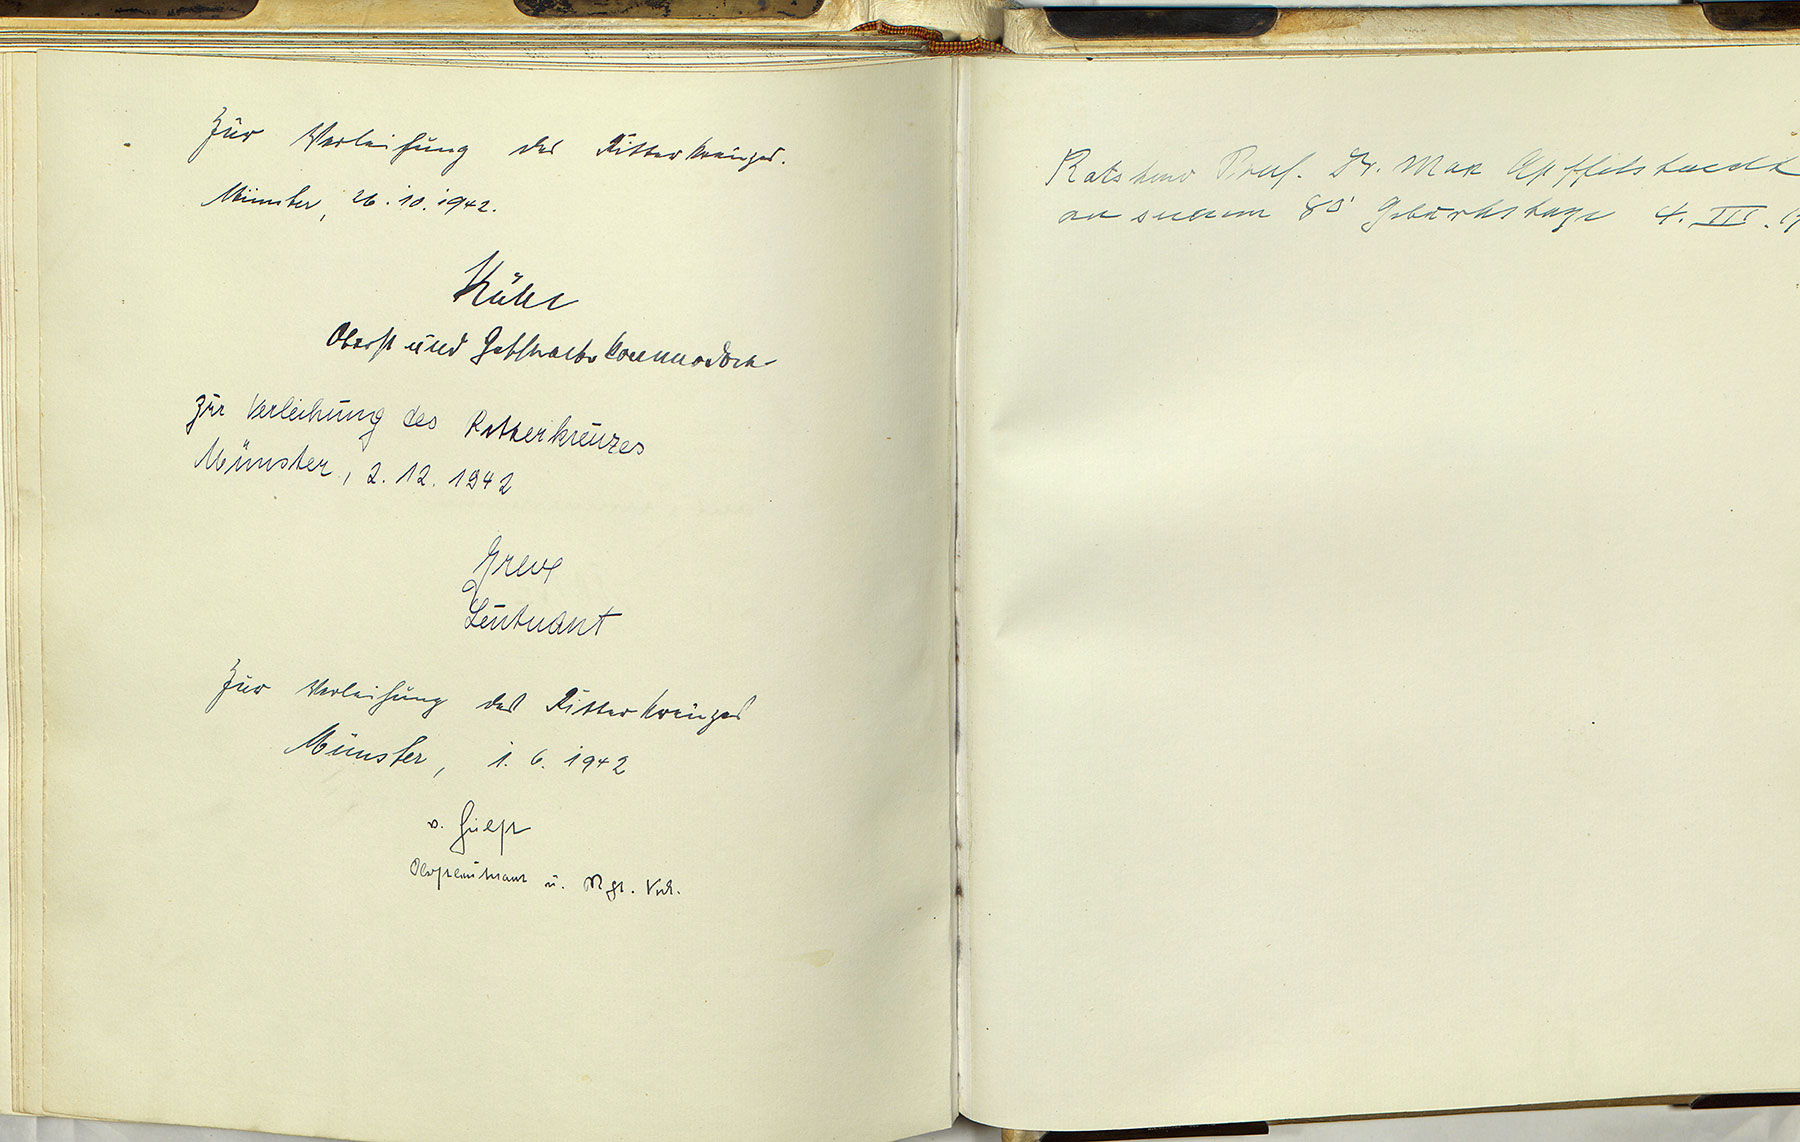 Zur Verleihung des Ritterkreuzes.
Münster, 26.10.1942.
Kühl
Oberst und Geschwaderkommodore
Zur Verleihung des Ritterkreuzes
Münster, 2.12.1942
Greve
Leutnant
Zur Verleihung des Ritterkreuzes
Münster, 1.6.1942
v.
Oberleutnant u.
Ratsherr Prof. Dr. Max Apffelstaedt
an seinem 80 Geburtstage 4. III.